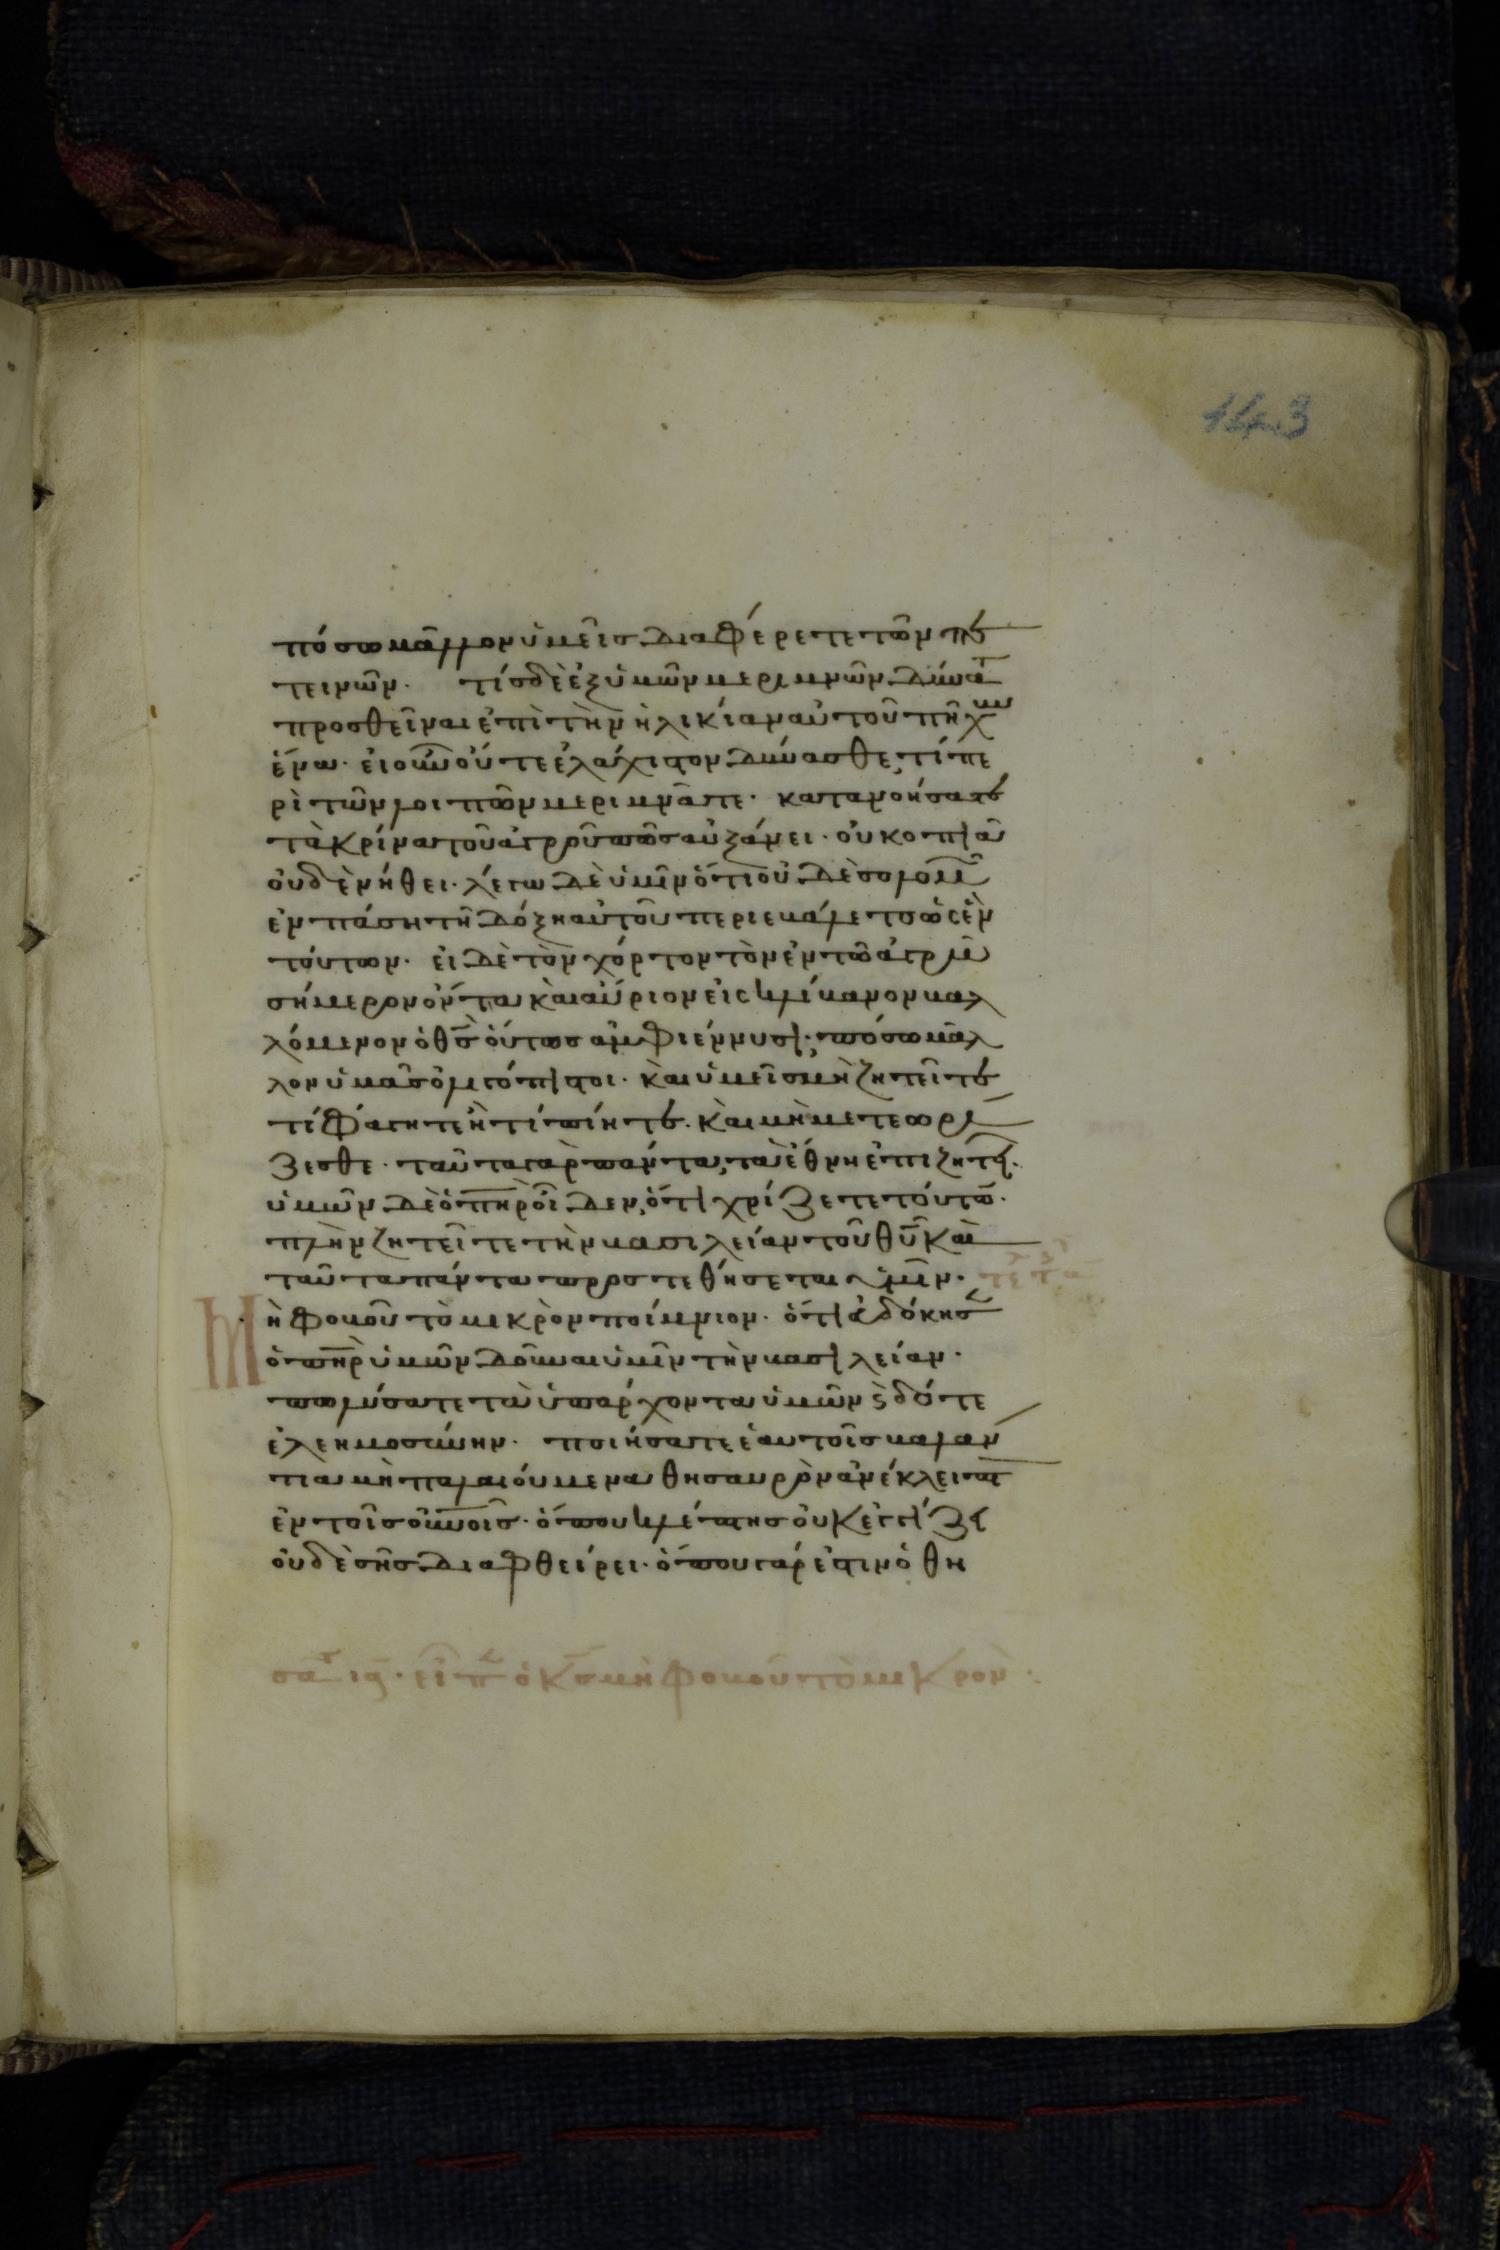 143
πόσω μᾶλλον ὑμεῖς διαφέρετε τῶν πε
τεινῶν. τίς δὲ ἐξ ὑμῶν μεριμνῶν δύνατ
προσθεῖναι ἐπὶ τὴν ἡλικίαν αὐτοῦ πῆχυν
ἕνα. εἰ οῦν οὔτε ἐλάχιστον δύνασθε, τί πε
ρὶ τῶν λοιπῶν μεριμνᾶτε. κατανοήσατε
τὰ κρίνα τοῦ ἀγροῦ πῶς αὐξάνει. οὐ κοπιᾶ
οὐδὲ νήθει. λέγω δὲ ὑμῖν ὅτι οὐδὲ σολομῶ
ἐν πάση τῆ δόξη αὐτοῦ περιεβάλετο ὡς ἓν
τούτων. εἰ δὲ τὸν χόρτον τὸν ἐν τῶ ἀγρῶ
σήμερον ὄντα καὶ αὔριον εἰς κλίβανον βαλ
λόμενον ὁ θς οὕτως ἀμφιέννυσι. πόσω μᾶλ
λον ὑμᾶς ὀλιγόπιστοι. καὶ ὑμεῖς μὴ ζητεῖτε
τί φάγητε ἢ τί πίητε. καὶ μὴ μετεωρί
ζεσθε. ταῦτα γὰρ πάντα, τὰ ἔθνη ἐπιζητεῖ.
ὑμῶν δὲ ὁ πηρ οἶδεν, ὅτι χρίζετε τούτω.
πλὴν ζητεῖτε τὴν βασιλείαν τοῦ θυ καὶ
ταῦτα πάντα προστεθήσεται ὑμῖν.
Μὴ φοβοῦ τὸ μικρὸν ποίμνιον. ὅτι εὐδόκησ
ὁ πηρ ὑμῶν δοῦναι ὑμῖν τὴν βασιλείαν.
πωλήσατε τὰ ὑπάρχοντα ὑμῶν ϛ δότε
ἐλεημοσύνην. ποιήσατε ἑαυτοῖς βαλάν
τια μὴ παλαιούμενα θησαυρὸν ἀνέκλειπτ
ἐν τοῖς οὐνοις. ὅπου κλέπτης οὐκ ἐγγίζει
οὐδὲ σὴς διαφθείρει. ὅπου γάρ ἐστιν ὁ θη
εἶπ ὁ κς μὴ φοβοῦ τὸ μικρὸν.